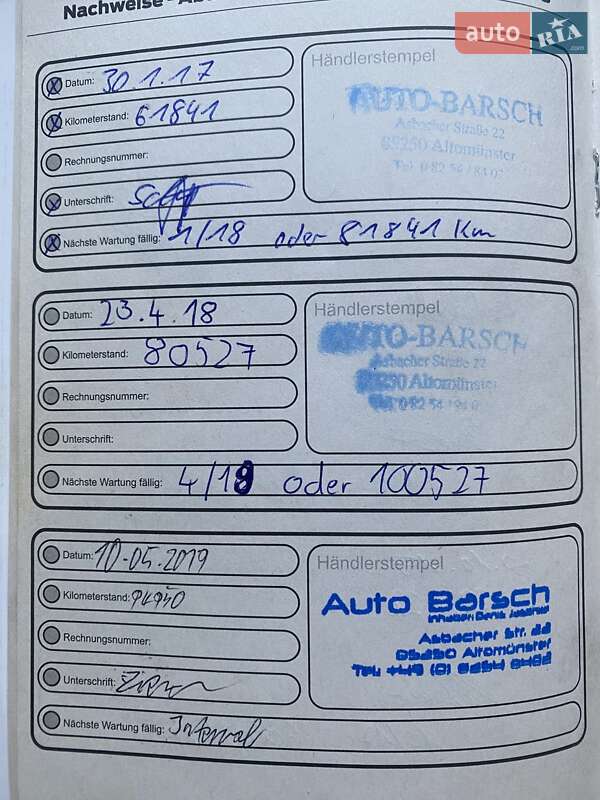 Nachweise
auto RIA .com
Datum: 30.1.17
Kilometerstand: 61841
Rechnungsnummer:
Unterschrift:
Nächste Wartung fällig: 1/18 oder 81841 Km
Händlerstempel
AUTO-BARSCH
Asbacher Straße 22
85250 Altomünster
Tel. 0 82 54 /
Datum: 23.4.18
Kilometerstand: 80527
Rechnungsnummer:
Unterschrift:
Nächste Wartung fällig: 4/19 oder 100527
Händlerstempel
AUTO-BARSCH
Asbacher Straße 22
85250 Altomünster
Tel. 0 82 54
Datum: 10-05.2019
Kilometerstand:
Rechnungsnummer:
Unterschrift:
Nächste Wartung fällig: Interval
Händlerstempel
Auto Barsch
Inhaber: Denis
Asbacher Str. 22
85250 Altomünster
Tel. +49 (0) 8254